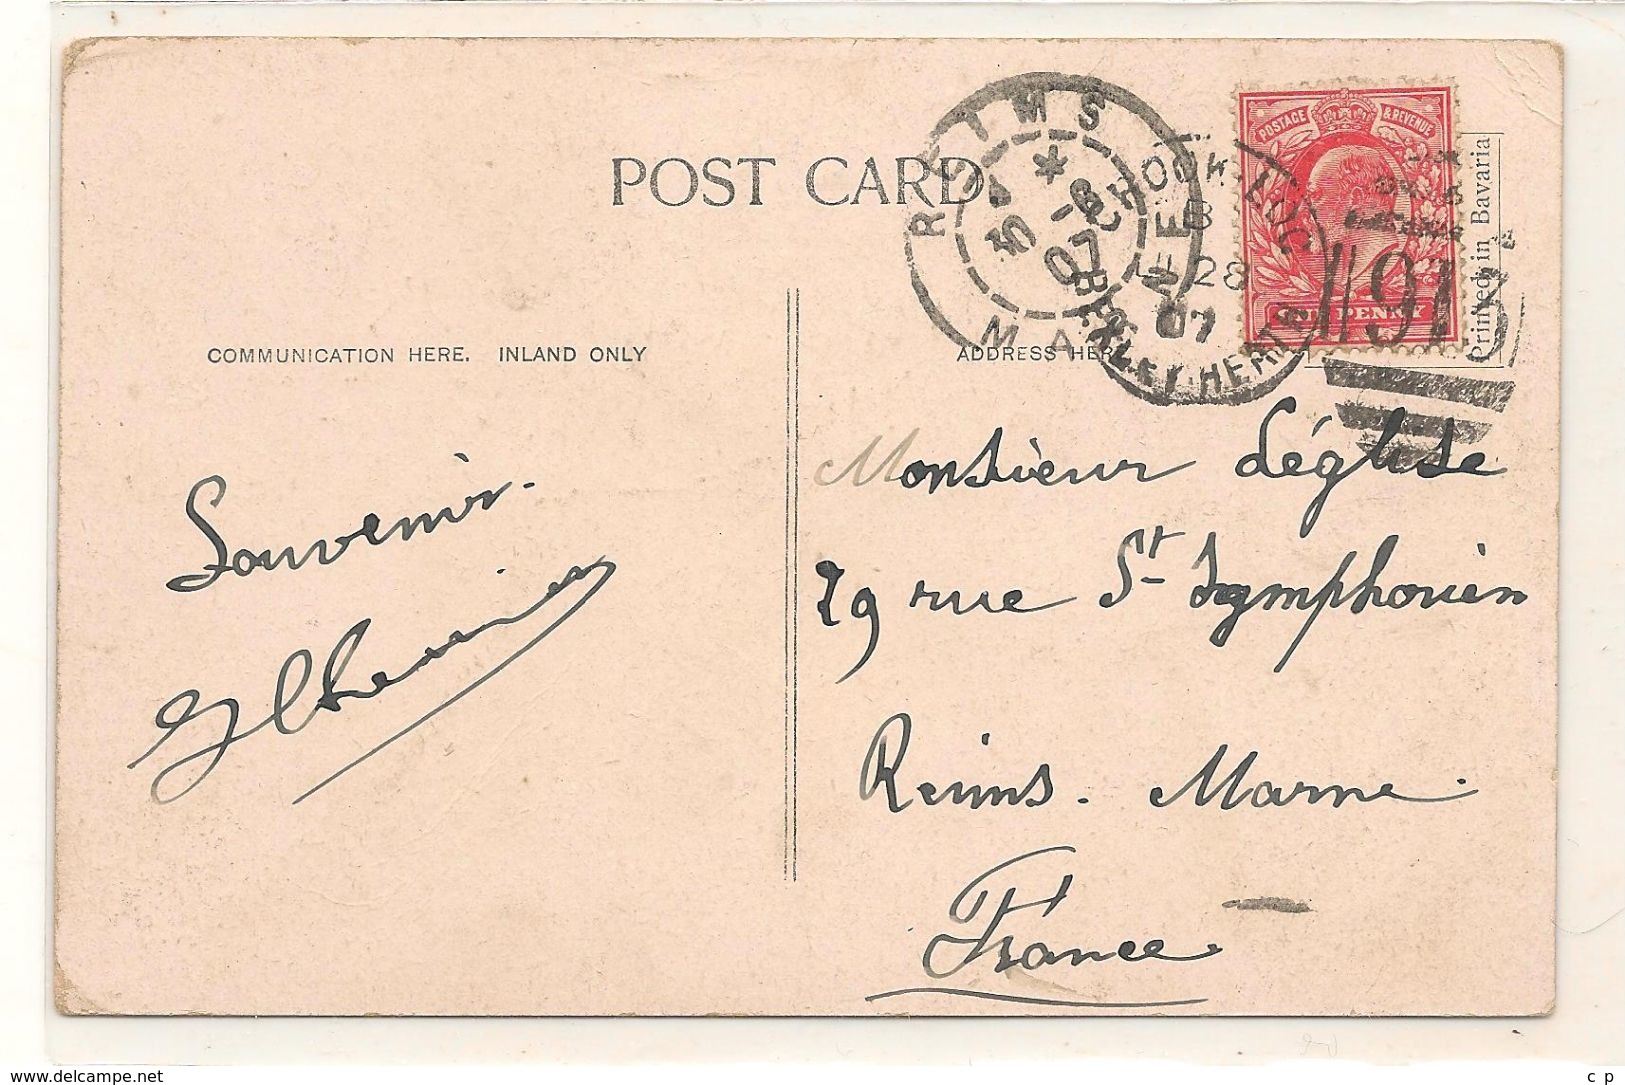 POST CARD
COMMUNICATION HERE. INLAND ONLY
ADDRESS HER
POSTAGE & REVENUE
ONE PENNY
Printed in Bavaria
REIMS
MA
30 -8
07
CHOOK
28
07
HERTS
913
Souvenir.
Monsieur Léglise
29 rue St Symphorien
Reims. Marne.
France
www.delcampe.net
c p